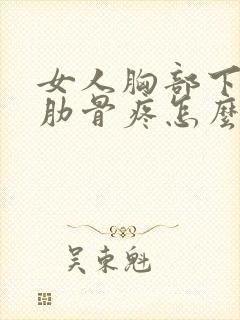 女人胸部下
肋骨疼怎麼
吴東魁